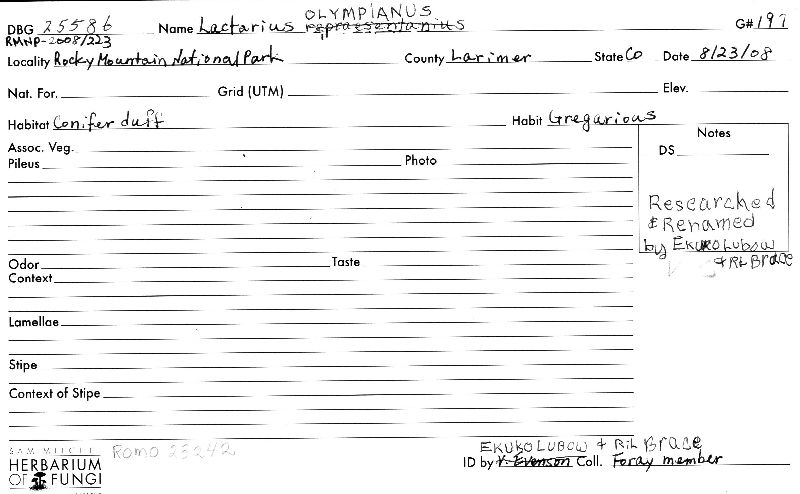 OLYMPIANUS
DBG 25586 Name Lactarius repraesentanius G# 197
RMNP-2008/223
Locality Rocky Mountain National Park County Larimer State Co Date 8/23/08
Nat. For. Grid (UTM) Elev.
Habitat Conifer duff Habit Gregarious
Assoc. Veg. Notes
Pileus Photo DS
Researched
& Renamed
by Ekuko Lubow
& RL Brace
Odor Taste
Context
Lamellae
Stipe
Context of Stipe
SAM MITCHEL ROMO 23242 EKUKO LUBOW & RL Brace
HERBARIUM ID by V. Evenson Coll. Foray member
OF FUNGI